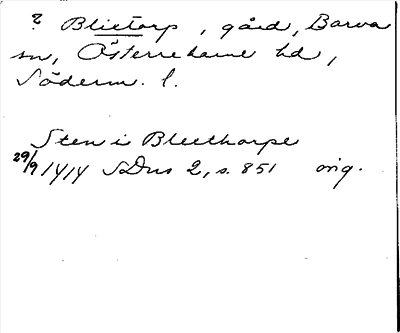 ? Blietorp, gård, Barva
sn, Österrekarne hd,
Söderm. l.
Sten i Bleethorpe
29/9 1414 SDns 2, s. 851 orig.